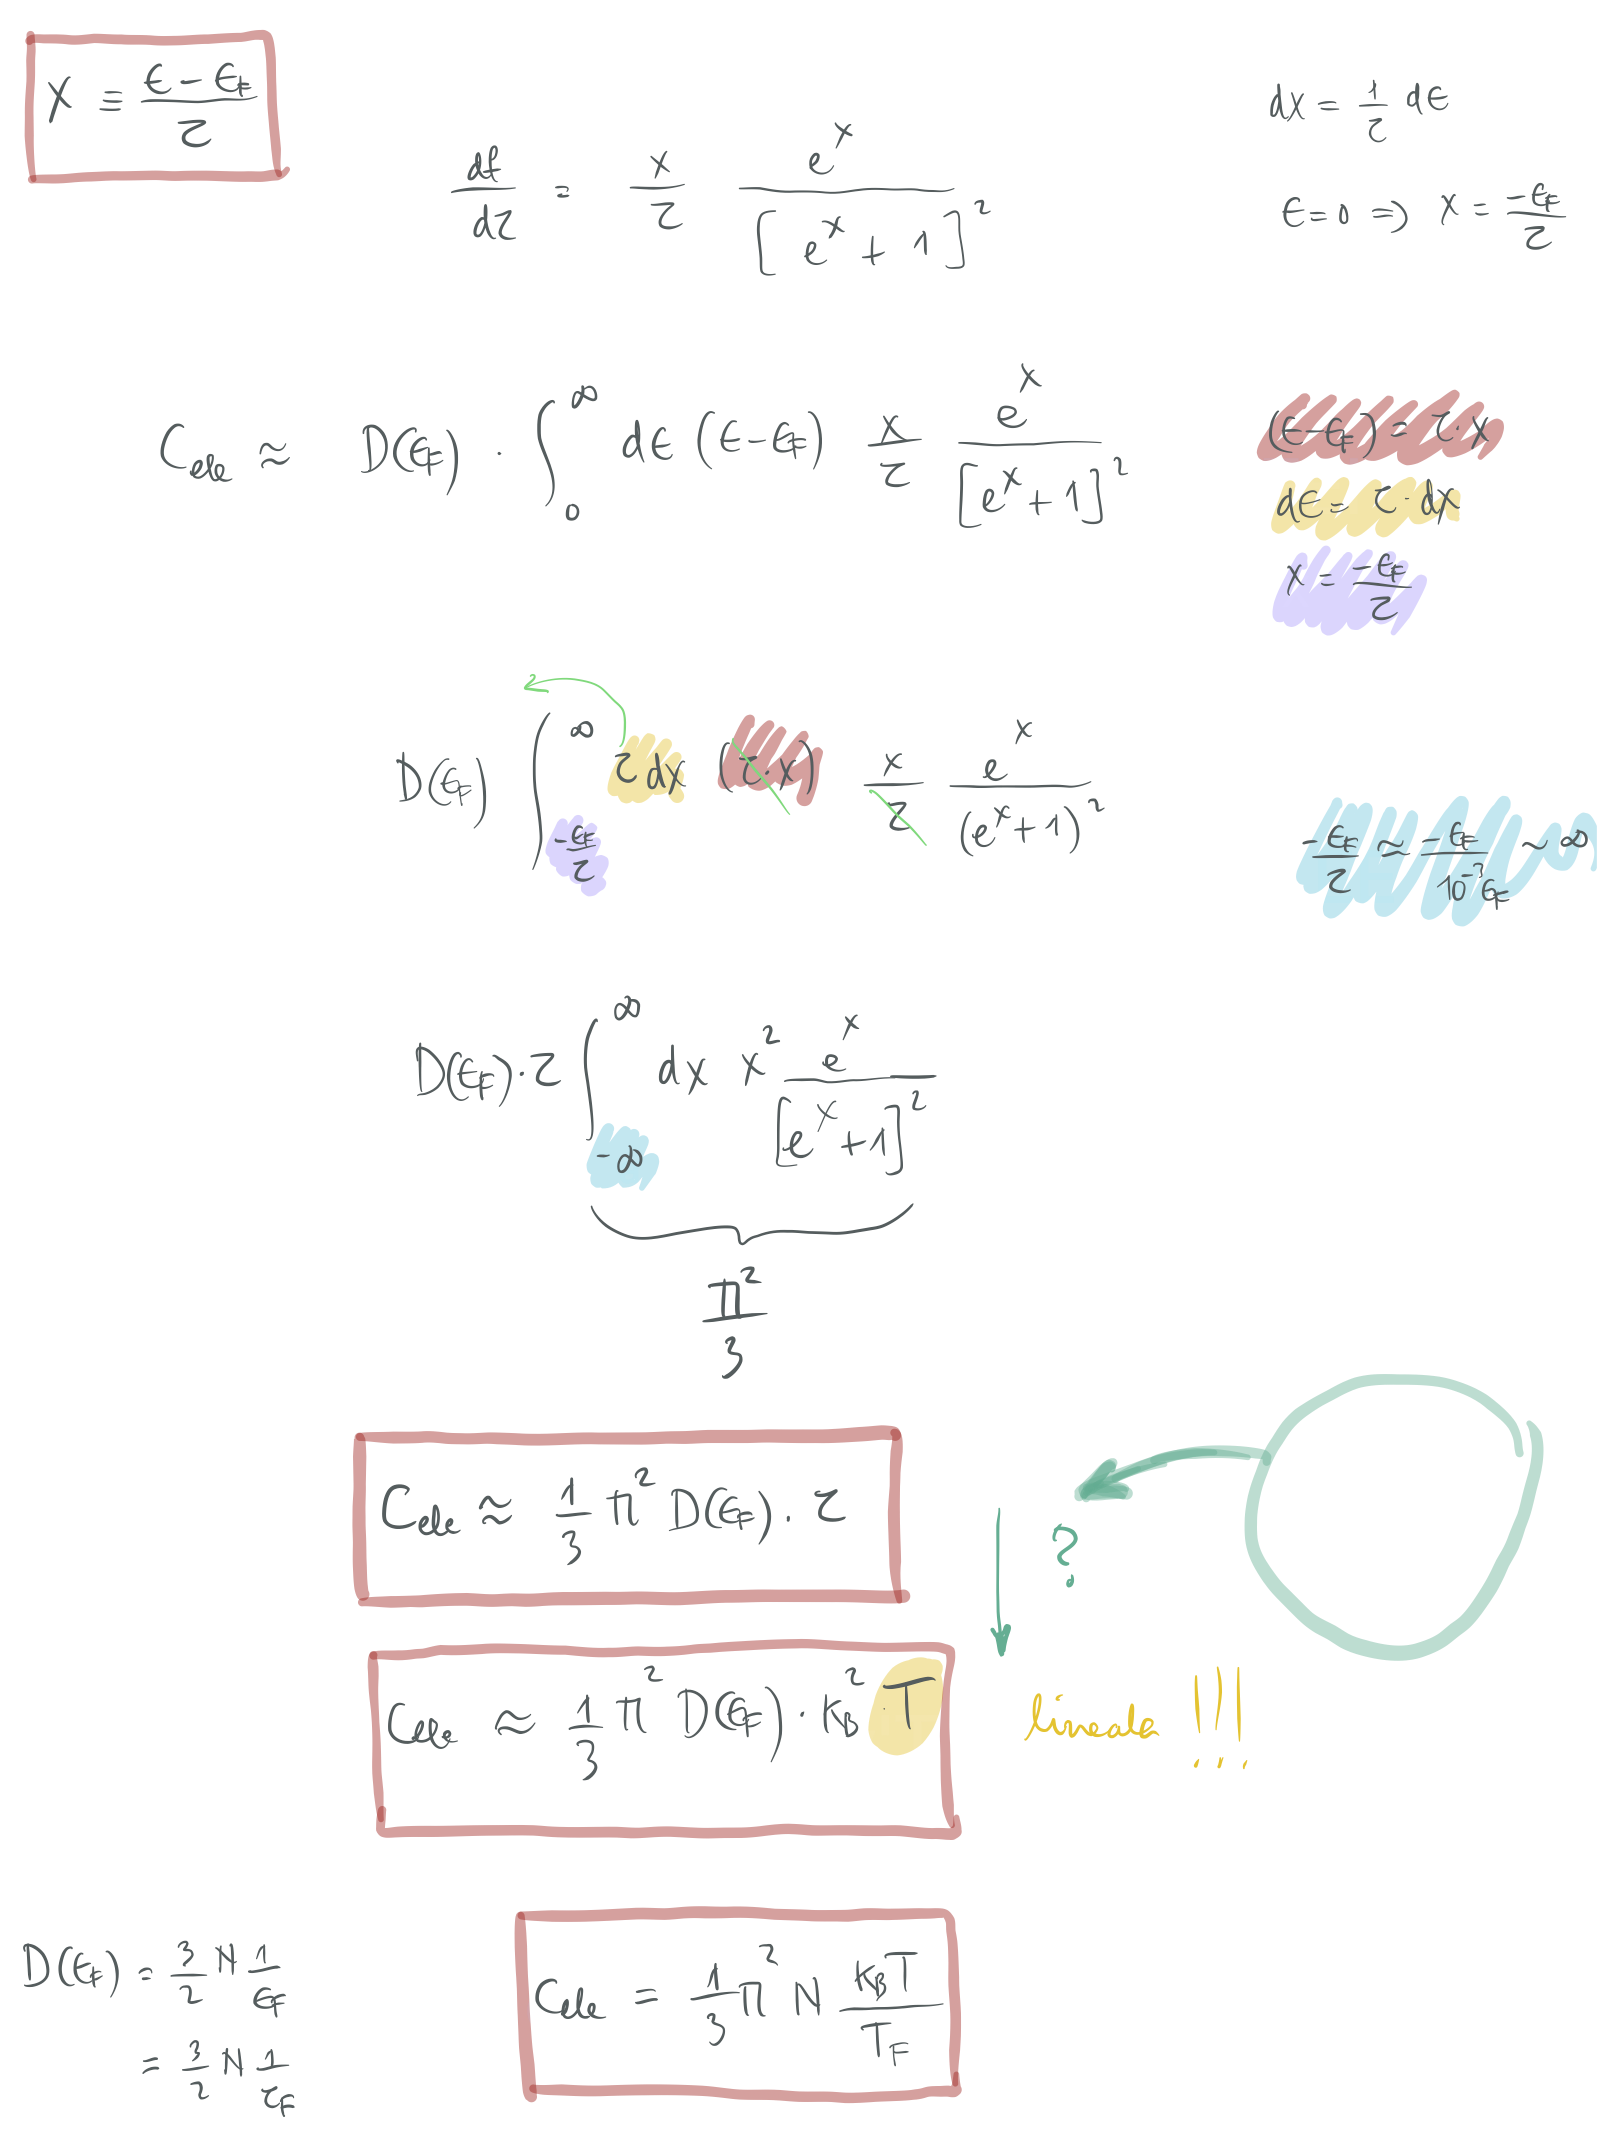 x ≡ (ϵ − ϵ_F)/τ
dx = 1/τ dϵ
df/dτ = x/τ e^x/[e^x + 1]^2
ϵ = 0 ⇒ x = −ϵ_F/τ
C_ele ≈ D(ϵ_F) · ∫_0^∞ dϵ (ϵ−ϵ_F) x/τ e^x/[e^x+1]^2
(ϵ−ϵ_F) = τ·x
dϵ = τ·dx
x = −ϵ_F/τ
D(ϵ_F) ∫_{−ϵ_F/τ}^∞ τ dx (τ·x) x/τ e^x/(e^x+1)^2
−ϵ_F/τ ≈ −ϵ_F/10^{−3}ϵ_F ~ ∞
D(ϵ_F)·τ ∫_{−∞}^∞ dx x^2 e^x/[e^x+1]^2
π^2/3
C_ele ≈ 1/3 π^2 D(ϵ_F) · τ
?
C_ele ≈ 1/3 π^2 D(ϵ_F) · k_B^2 · T
lineala !!!
D(ϵ_F) = 3/2 N 1/ϵ_F
= 3/2 N 1/τ_F
C_ele = 1/3 π^2 N k_B T/T_F